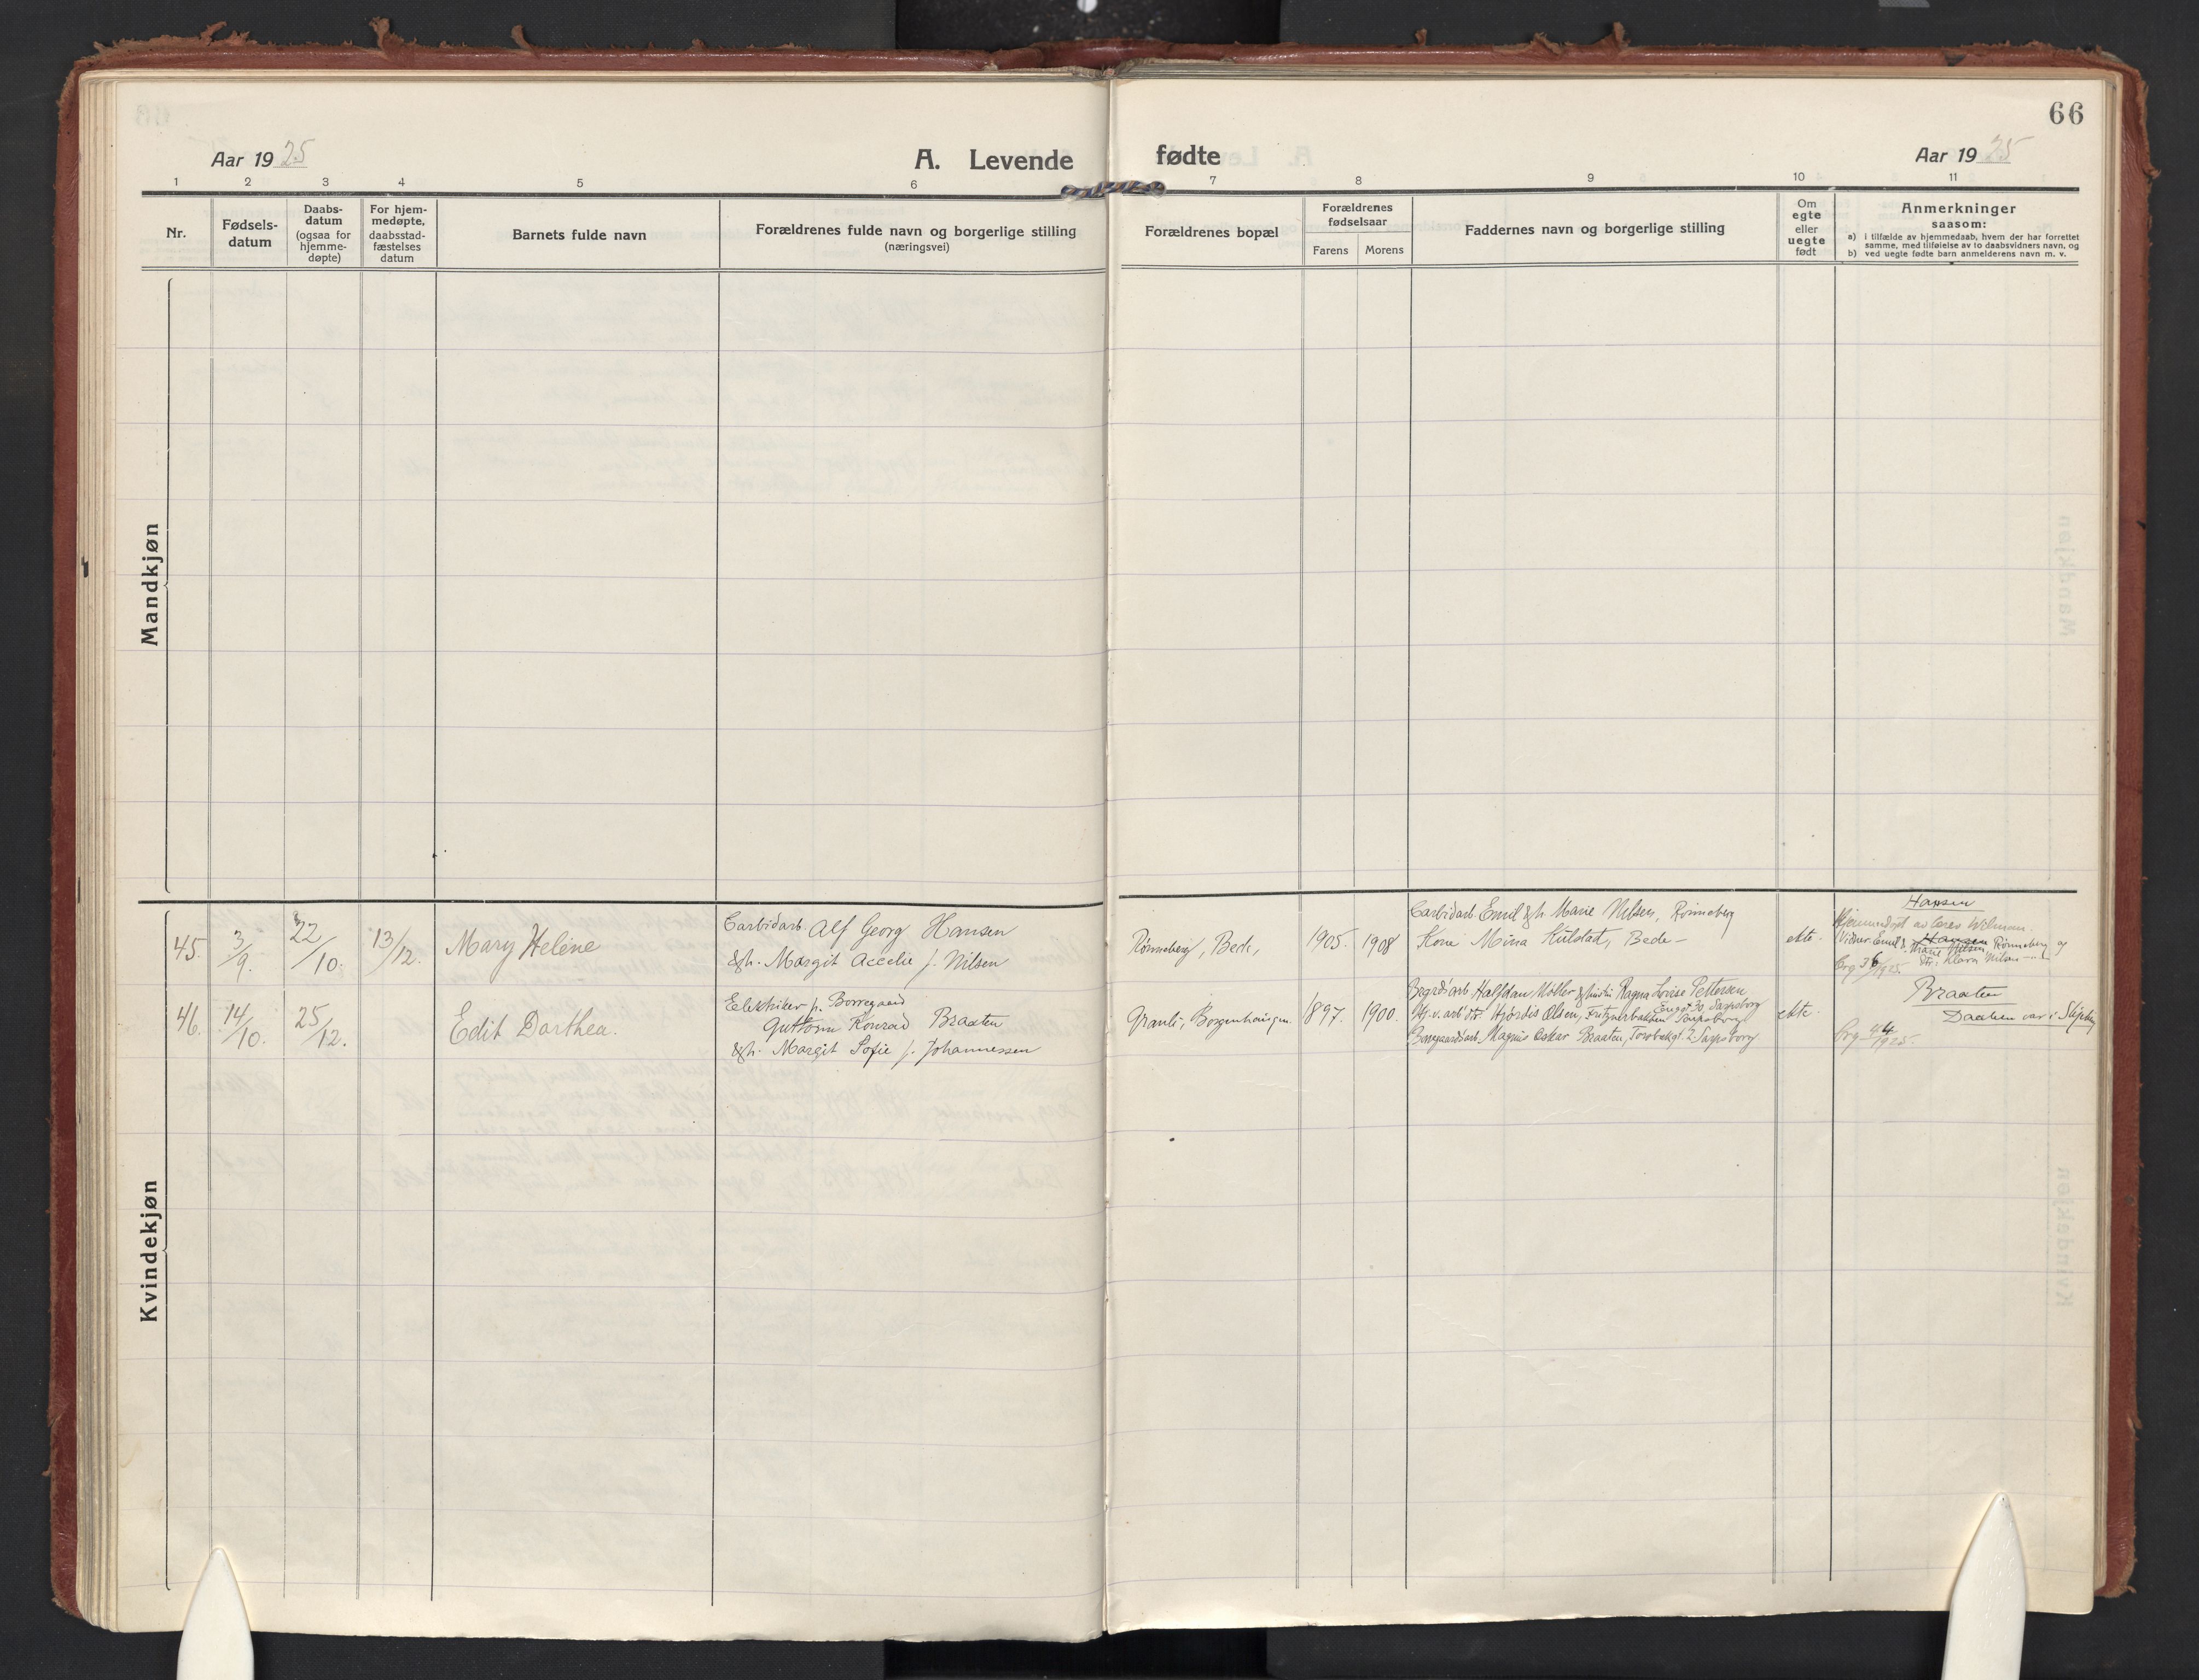 66
Aar 1925
A. Levende
fødte
Aar 1925
1 2 3 4 5 6 7 8 9 10 11
Nr.
Fødsels-
datum
Daabs-
datum
(ogsaa for
hjemme-
døpte)
For hjem-
medøpte,
daabsstad-
fæstelses
datum
Barnets fulde navn
Forældrenes fulde navn og borgerlige stilling
(næringsvei)
Forældrenes bopæl
Forældrenes
fødselsaar
Farens Morens
Faddernes navn og borgerlige stilling
Om
egte
eller
uegte
født
Anmerkninger
saasom:
a) i tilfælde av hjemmedaab, hvem der har forrettet
samme, med tilføielse av to daabsvidners navn, og
b) ved uegte fødte barn anmelderens navn m. v.
Mandkjøn
Kvindekjøn
45. 3/9. 22/10. 13/12. Mary Helene
Carbidarb. Alf Georg Hansen
&h. Margit f. Nilsen
Rønneberg, Bede,
1905. 1908
Carbidarb. Emil &h. Marie Nilsen, Rønneberg
Kone Mina Kulstat, Bede —
ekte.
Hansen
Hjemmedøpt av
Vidner: Emil & Marie Nilsen, Rønneberg og
Klara Nilsen
Brg 36/1925.
46. 14/10. 25/12. Edit Dorthea.
Elektriker p. Borregaard
Guttorm Konrad Braaten
&h. Margit Sofie f. Johannessen
Granli, Borgenhaugen.
1897. 1900.
Halfdan Møller & hustru Ragna Lovise Pettersen
Engg. 30 Sarpsborg
Hjørdis Olsen, Fritznerbakken Sarpsborg
Borregaardsarb. Magnus Oskar Braaten, Torsbekgt. 2 Sarpsborg
ekte.
Braaten
Daaben var i
Brg 44/1925.